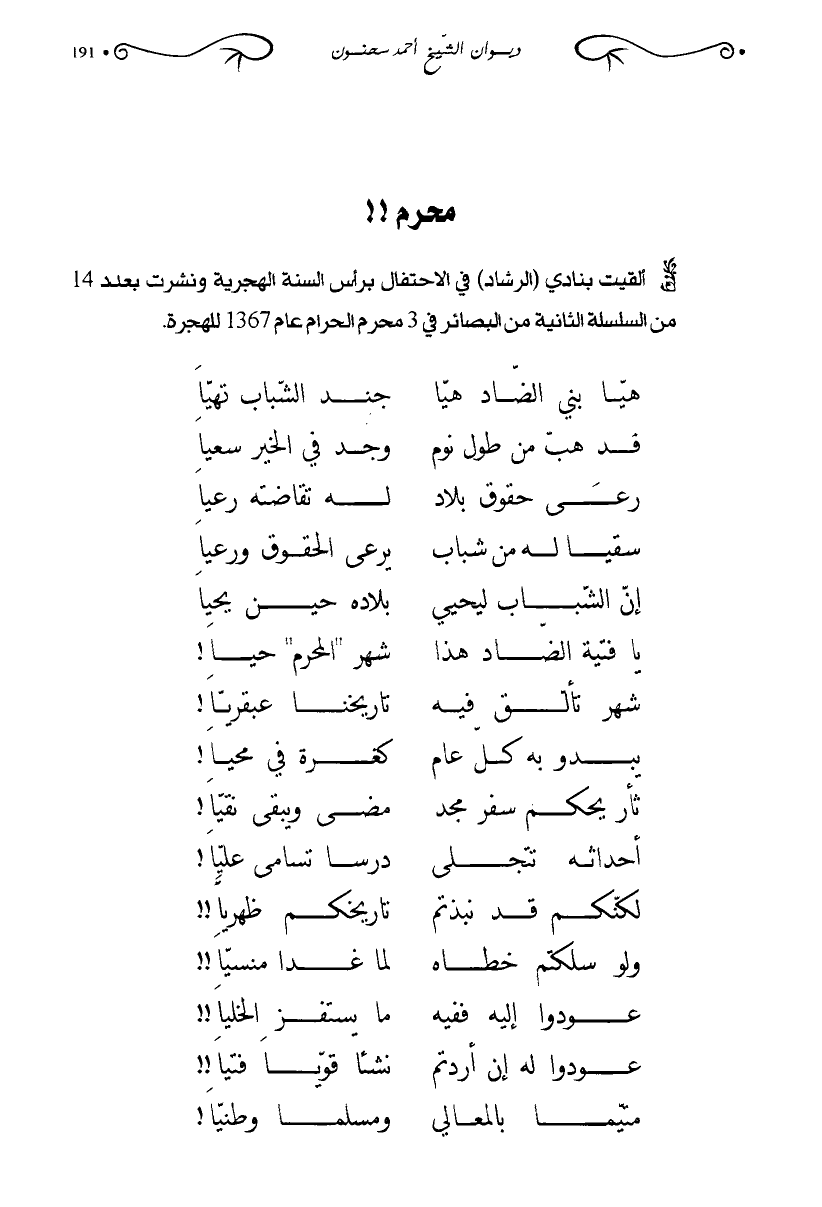 ديوان الشيخ أحمد سحنون 191
محرم !!
ألقيت بنادي (الرشاد) في الاحتفال برأس السنة الهجرية ونشرت بعدد 14
من السلسلة الثانية من البصائر في 3 محرم الحرام عام 1367 للهجرة.
هيّا بني الضّاد هيّا جند الشّباب تهيّا
قد هبّ من طول نوم وجد في الخير سعيا
رعى حقوق بلاد له تقاضته رعيا
سقيا له من شباب يرعى الحقوق ورعيا
إنّ الشّباب ليحيي بلاده حين يحيا
يا فتية الضّاد هذا شهر "المحرم" حيا !
شهر تألّق فيه تاريخنا عبقريّا !
يبدو به كلّ عام كغرة في محيا !
ثأر يحكم سفر مجد مضى ويبقى نقيّا !
أحداثه تتجلى درسا تسامى عليّا !
لكنّكم قد نبذتم تاريخكم ظهريا !!
ولو سلكتم خطاه لما غدا منسيّا !!
عودوا إليه ففيه ما يستفز الخليا !!
عودوا له إن أردتم نشئا قويّا فتيا !!
متيّما بالمعالي ومسلما وطنيّا !